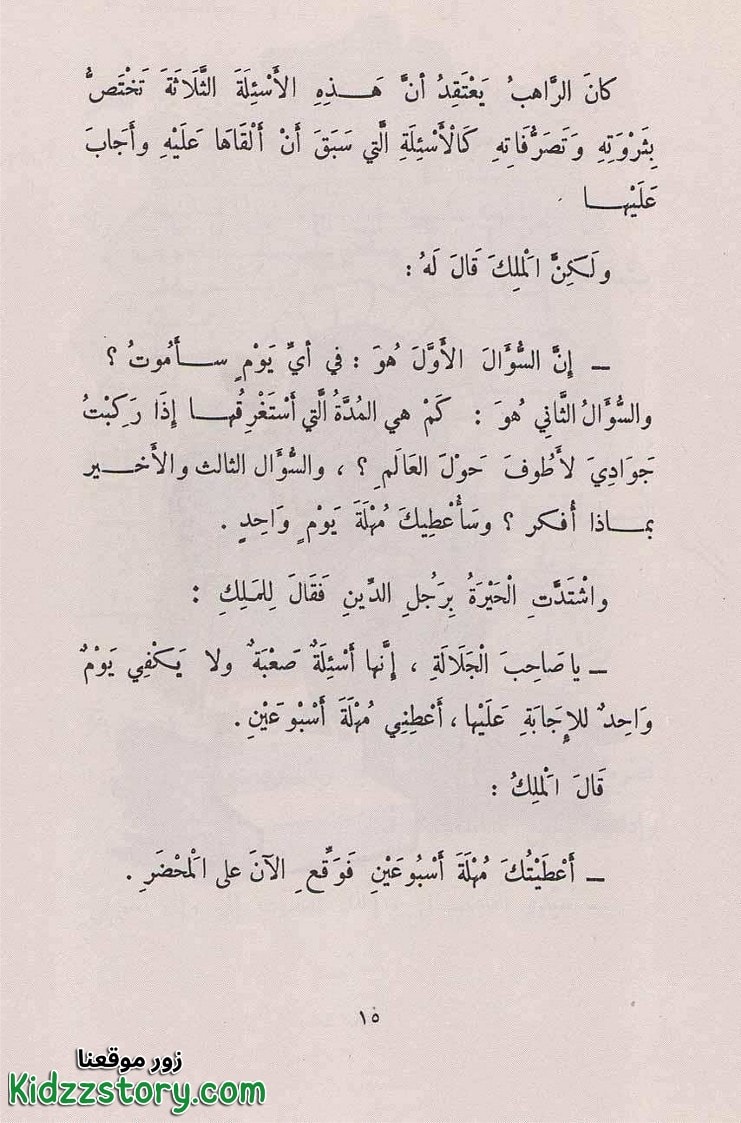 كانَ الرَّاهبُ يَعْتَقِدُ أنَّ هَـــذِهِ الأَسْئِلَةَ الثَّلَاثَةَ تَخْتَصُّ
بِثَرْوَتِهِ وَتَصَرُّفَاتِهِ كَالْأَسْئِلَةِ الَّتي سَبَقَ أَنْ أَلْقَاهَا عَلَيْهِ وأَجَابَ
عَلَيْهـــا
ولَكِنَّ الْمَلِكَ قَالَ لَهُ :
ـ إِنَّ السُّؤَالَ الأَوَّلَ هُوَ : في أيِّ يَوْمٍ ســأَمُوتُ ؟
والسُّؤَالُ الثَّانِي هُوَ : كَمْ هي المُدَّةُ الَّتي أَسْتَغْرِقُهــا إِذَا رَكِبْتُ
جَوَادِيَ لأَطُوفَ حَوْلَ العَالَمِ ؟ ، والسُّؤَال الثالث والأَخـــير
بمـــاذا أُفكر ؟ وسَأُعْطِيكَ مُهْلَةَ يَوْمٍ وَاحِدٍ .
واشْتَدَّتِ الْحَيْرَةُ بِرَجُلِ الدِّينِ فَقَالَ لِلمَلِكِ :
ـ ياصَاحِبَ الْجَلَالَةِ ، إنَّها أَسْئِلَةٌ صَعْبَةٌ ولا يَكْفِي يَوْمٌ
وَاحِدٌ للإِجَابَةِ عَلَيْها ، أَعْطِنِي مُهْلَةَ أَسْبُوعَيْنِ .
قَالَ الْمَلِكُ :
ـ أَعْطَيْتُكَ مُهْلَةَ أَسْبُوعَيْنِ فَوَقِّعِ الآنَ على الْمَحْضَرِ .
١٥
زور موقعنا
Kidzzstory.com